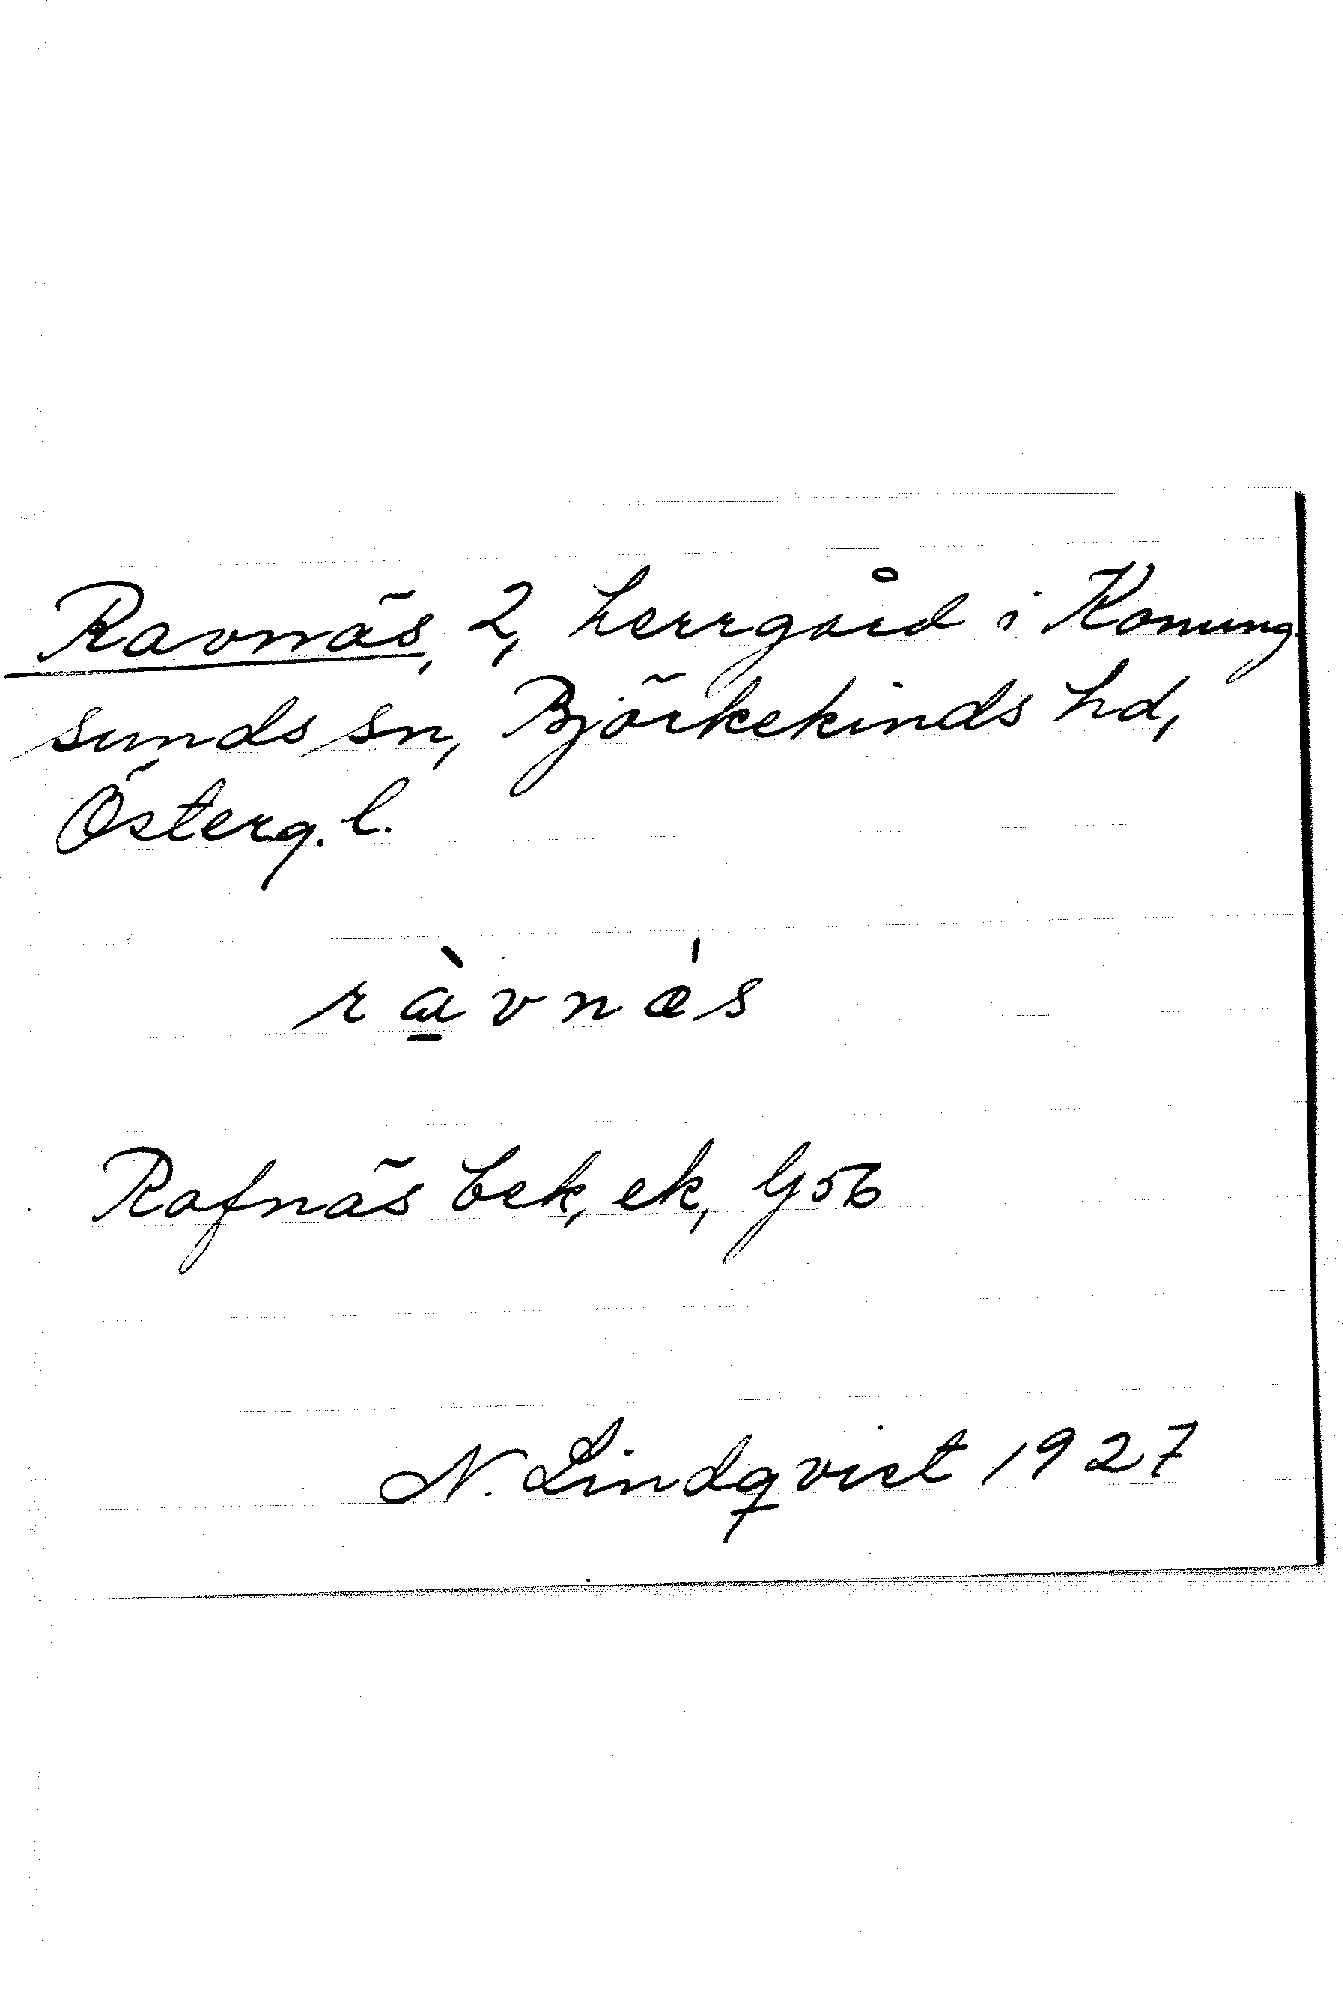 Ravnäs, 2, herrgård i Konung-
sunds sn, Björkekinds hd,
Österg. l.
ràvnæ̍s
Rafnäs bek, ek, G 56
N. Lindqvist 1927